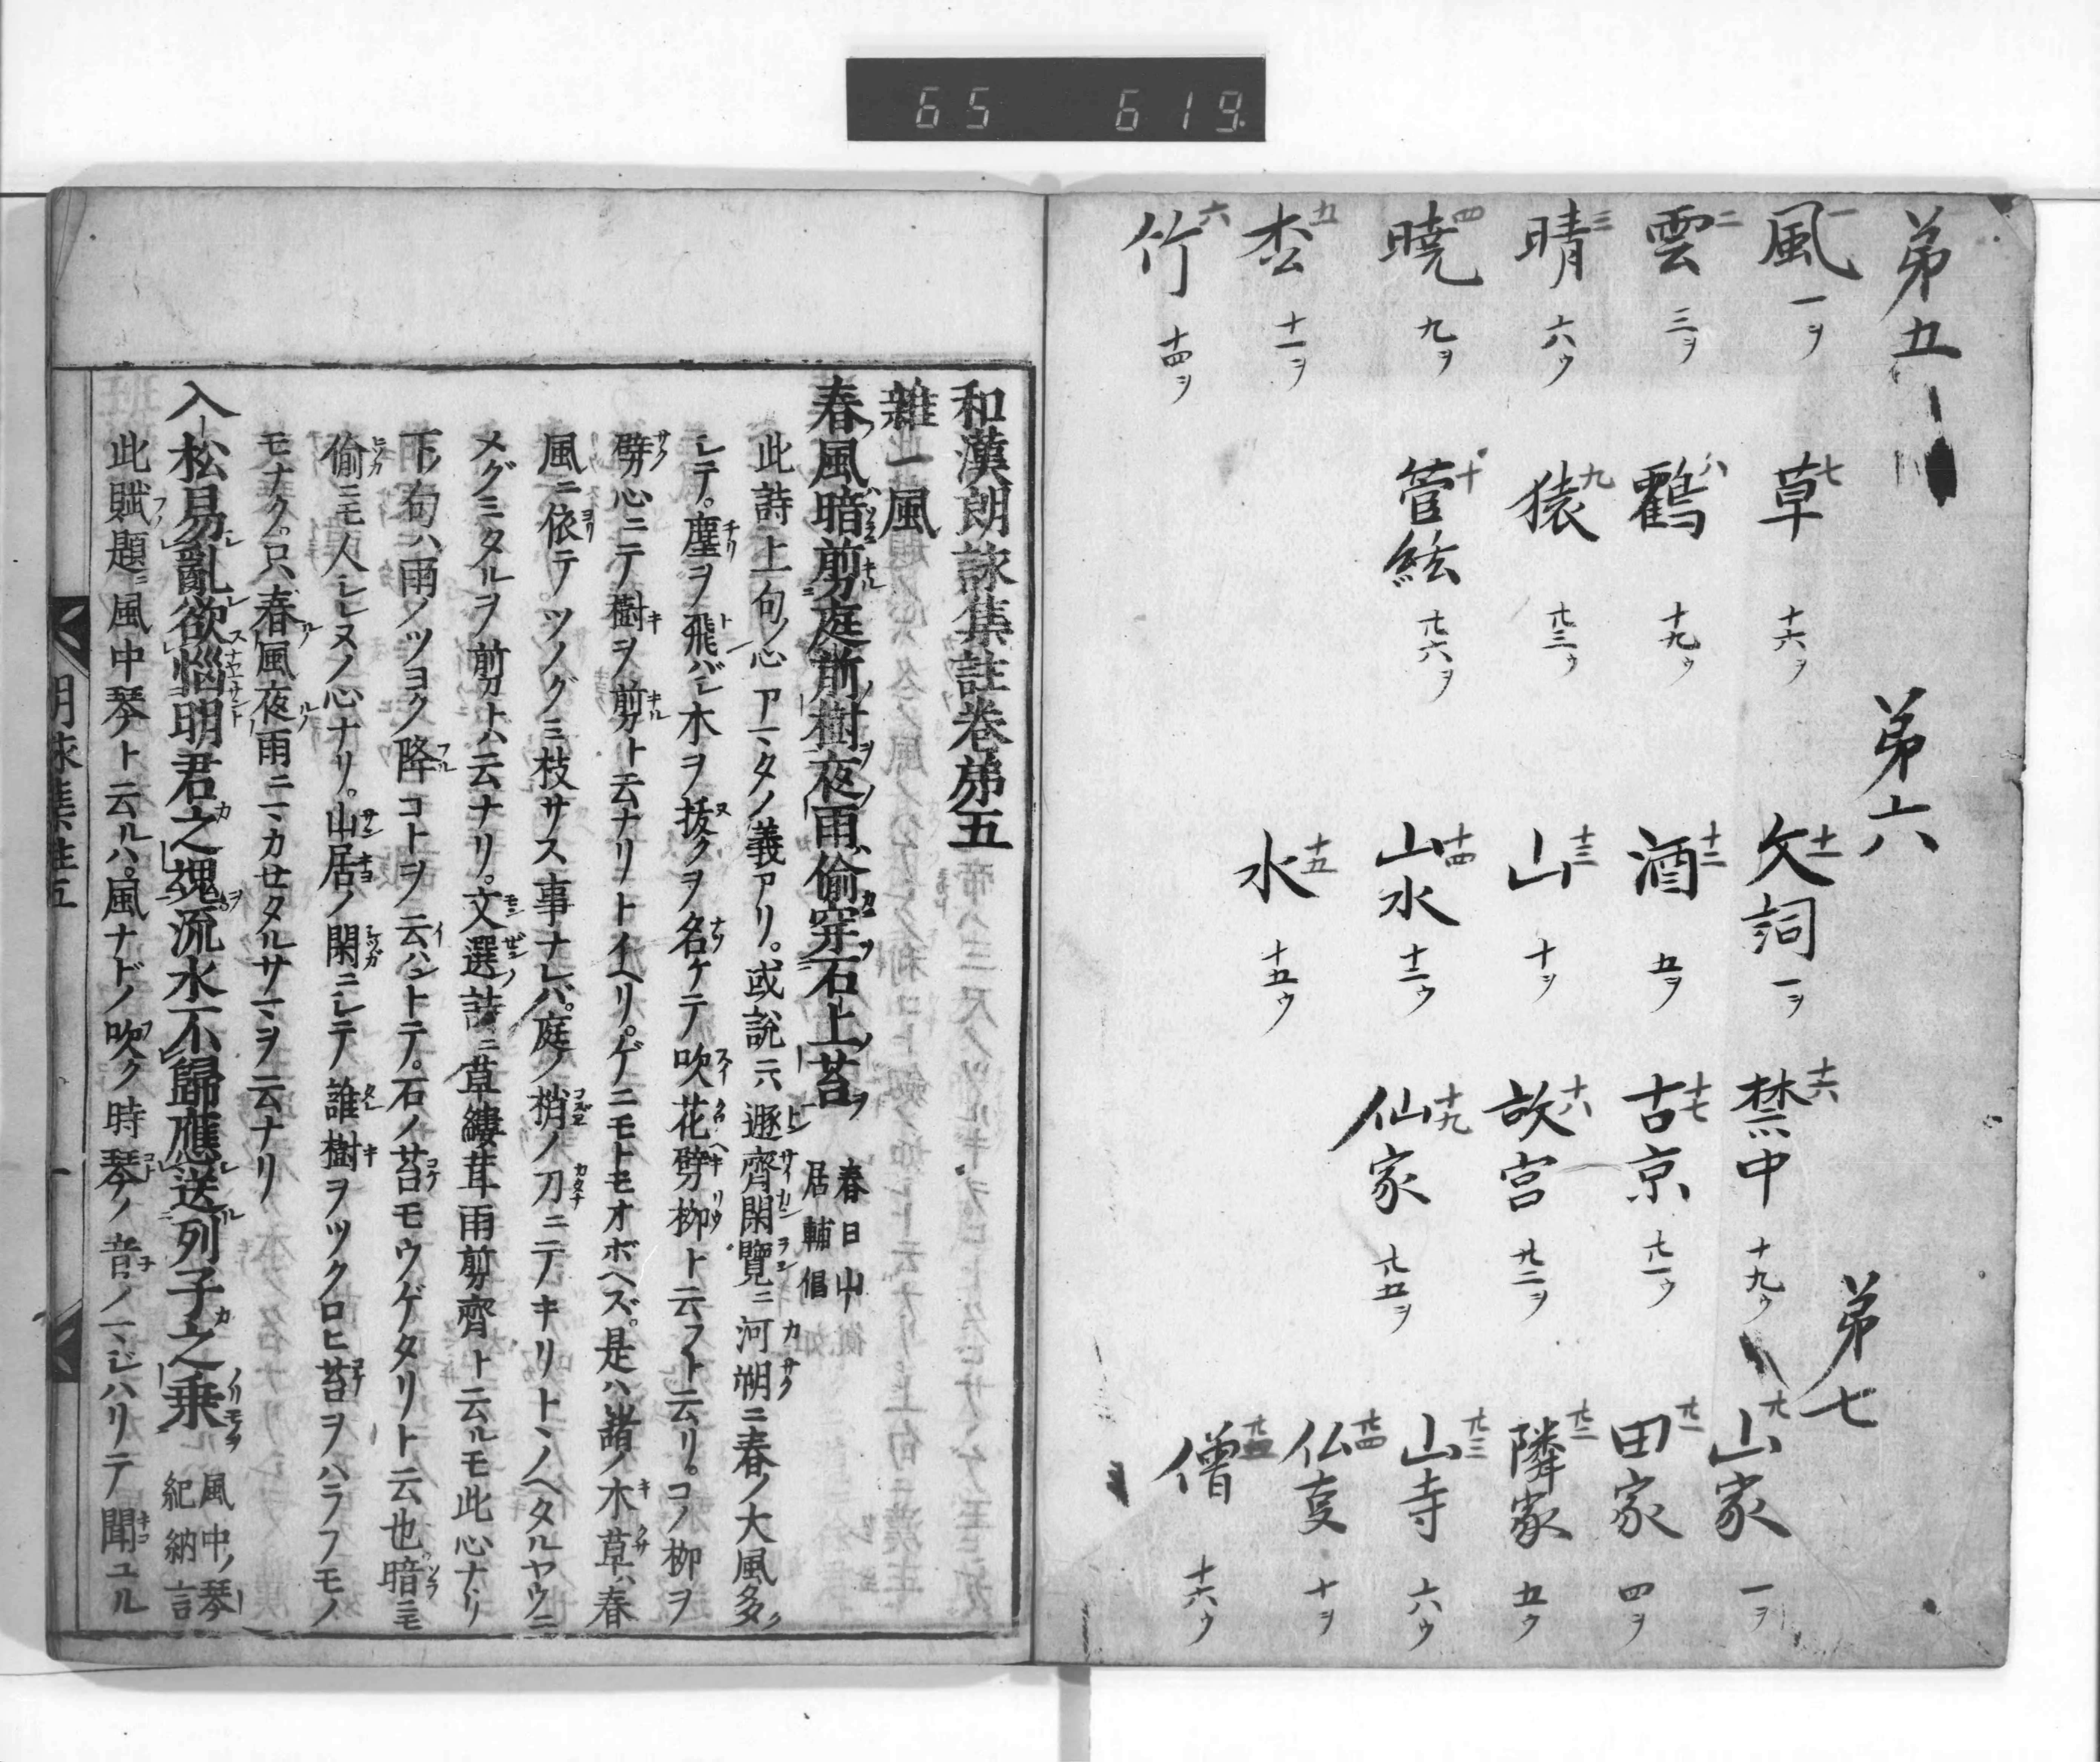 65 619
第五
風一 一ヲ
雲二 三ヲ
晴三 六ウ
暁四 九ヲ
枩五 十一ヲ
竹六 十四ヲ
草七 十六ヲ
鶴八 十九ウ
猿九 廿三ウ
管絃十 廿六ヲ
第六
文詞十一 一ヲ
酒十二 五ヲ
山十三 十ヲ
山水十四 十二ウ
水十五 十五ウ
禁中十六 十九ウ
古京十七 廿一ウ
故宮十八 廿二ヲ
仙家十九 廿五ヲ
第七
山家廿 一ヲ
田家廿一 四ヲ
隣家廿二 五ウ
山寺廿三 六ウ
仏事廿四 十ヲ
僧廿五 十六ウ
和漢朗詠集註巻第五
雜 一風
春風暗剪庭前樹夜雨偷穿石上苔 春日山居 輔昭
此詩上句ノ心アマタノ義アリ。或說云 遯齊閑覽ニ河朔ニ春ノ大風多ク
シテ。塵ヲ飛バシ木ヲ拔クヲ名ケテ吹花劈柳ト云フト云リ。コノ柳ヲ
劈心ニテ樹ヲ剪ト云ナリトイヘリ。ゲニモトモオボヘズ。是ハ諸ノ木草ハ春
風ニ依テツノグミ枝サス事ナレバ。庭ノ梢ノ刀ニテキリトヽノヘタルヤウニ
メグミタルヲ剪トハ云ナリ。文選詩ニ草縷茸雨剪齊ト云ルモ此心ナリ
下ノ句ハ雨ノツヨク降コトヲ云ハントテ。石ノ苔モウゲタリト云也。暗ニモ
偷ニモ人シレヌノ心ナリ。山居ノ閑ニシテ誰樹ヲツクロヒ苔ヲハラフモノ
モナク。只春風夜雨ニマカセタルサマヲ云ナリ
入松易亂欲惱明君之魂流水不歸應送列子之乘 風中ノ琴 紀納言
此賦題ニ風中琴ト云ルハ。風ナドノ吹ク時琴ノ音ノマジハリテ聞ユル